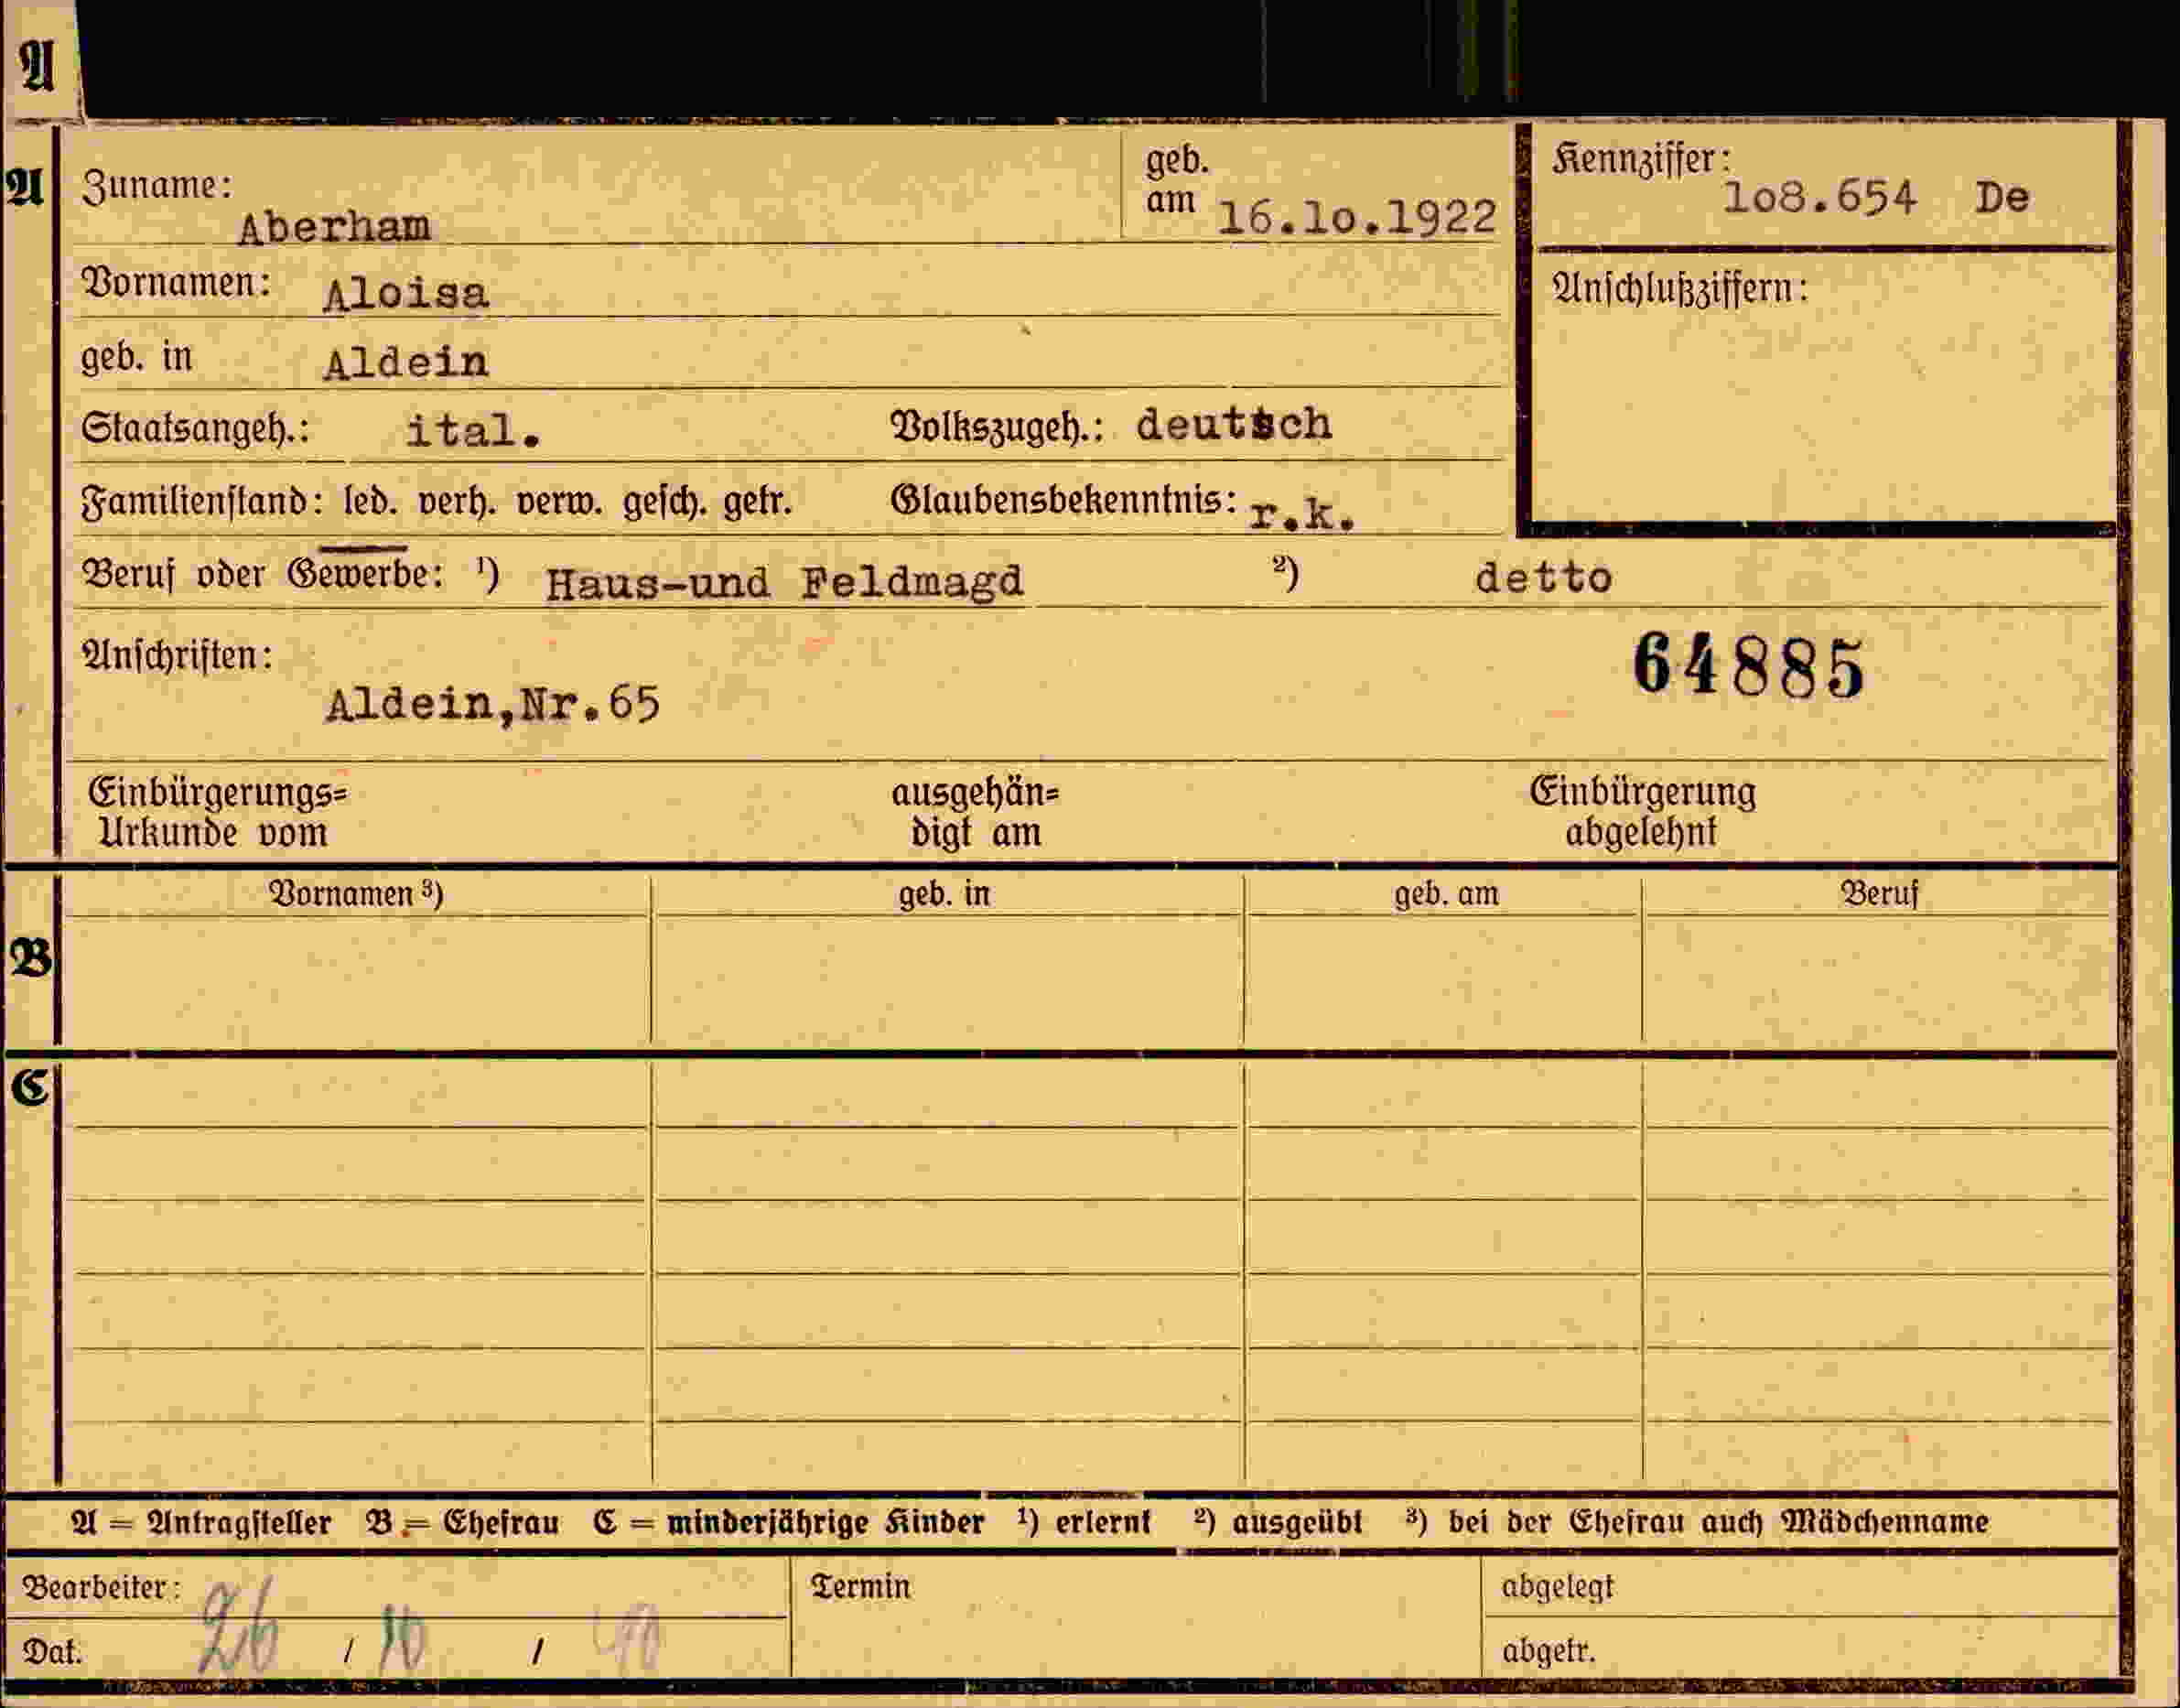 A
A
Zuname:
Aberham
geb.
am 16.1o.1922
Kennziffer:
1o8.654 De
Vornamen: Aloisa
Anschlußziffern:
geb. in Aldein
Staatsangeh.: ital. Volkszugeh.: deutsch
Familienstand: led. verh. verw. gesch. getr. Glaubensbekenntnis: r.k.
Beruf oder Gewerbe: ¹) Haus-und Feldmagd ²) detto
Anschriften:
64885
Aldein,Nr.65
Einbürgerungs=
Urkunde vom
ausgehän=
digt am
Einbürgerung
abgelehnt
Vornamen ³) geb. in geb. am Beruf
B
C
A = Antragsteller B = Ehefrau C = minderjährige Kinder ¹) erlernt ²) ausgeübt ³) bei der Ehefrau auch Mädchenname
Bearbeiter:
Termin
abgelegt
Dat. 26 / 10 / 40
abgetr.